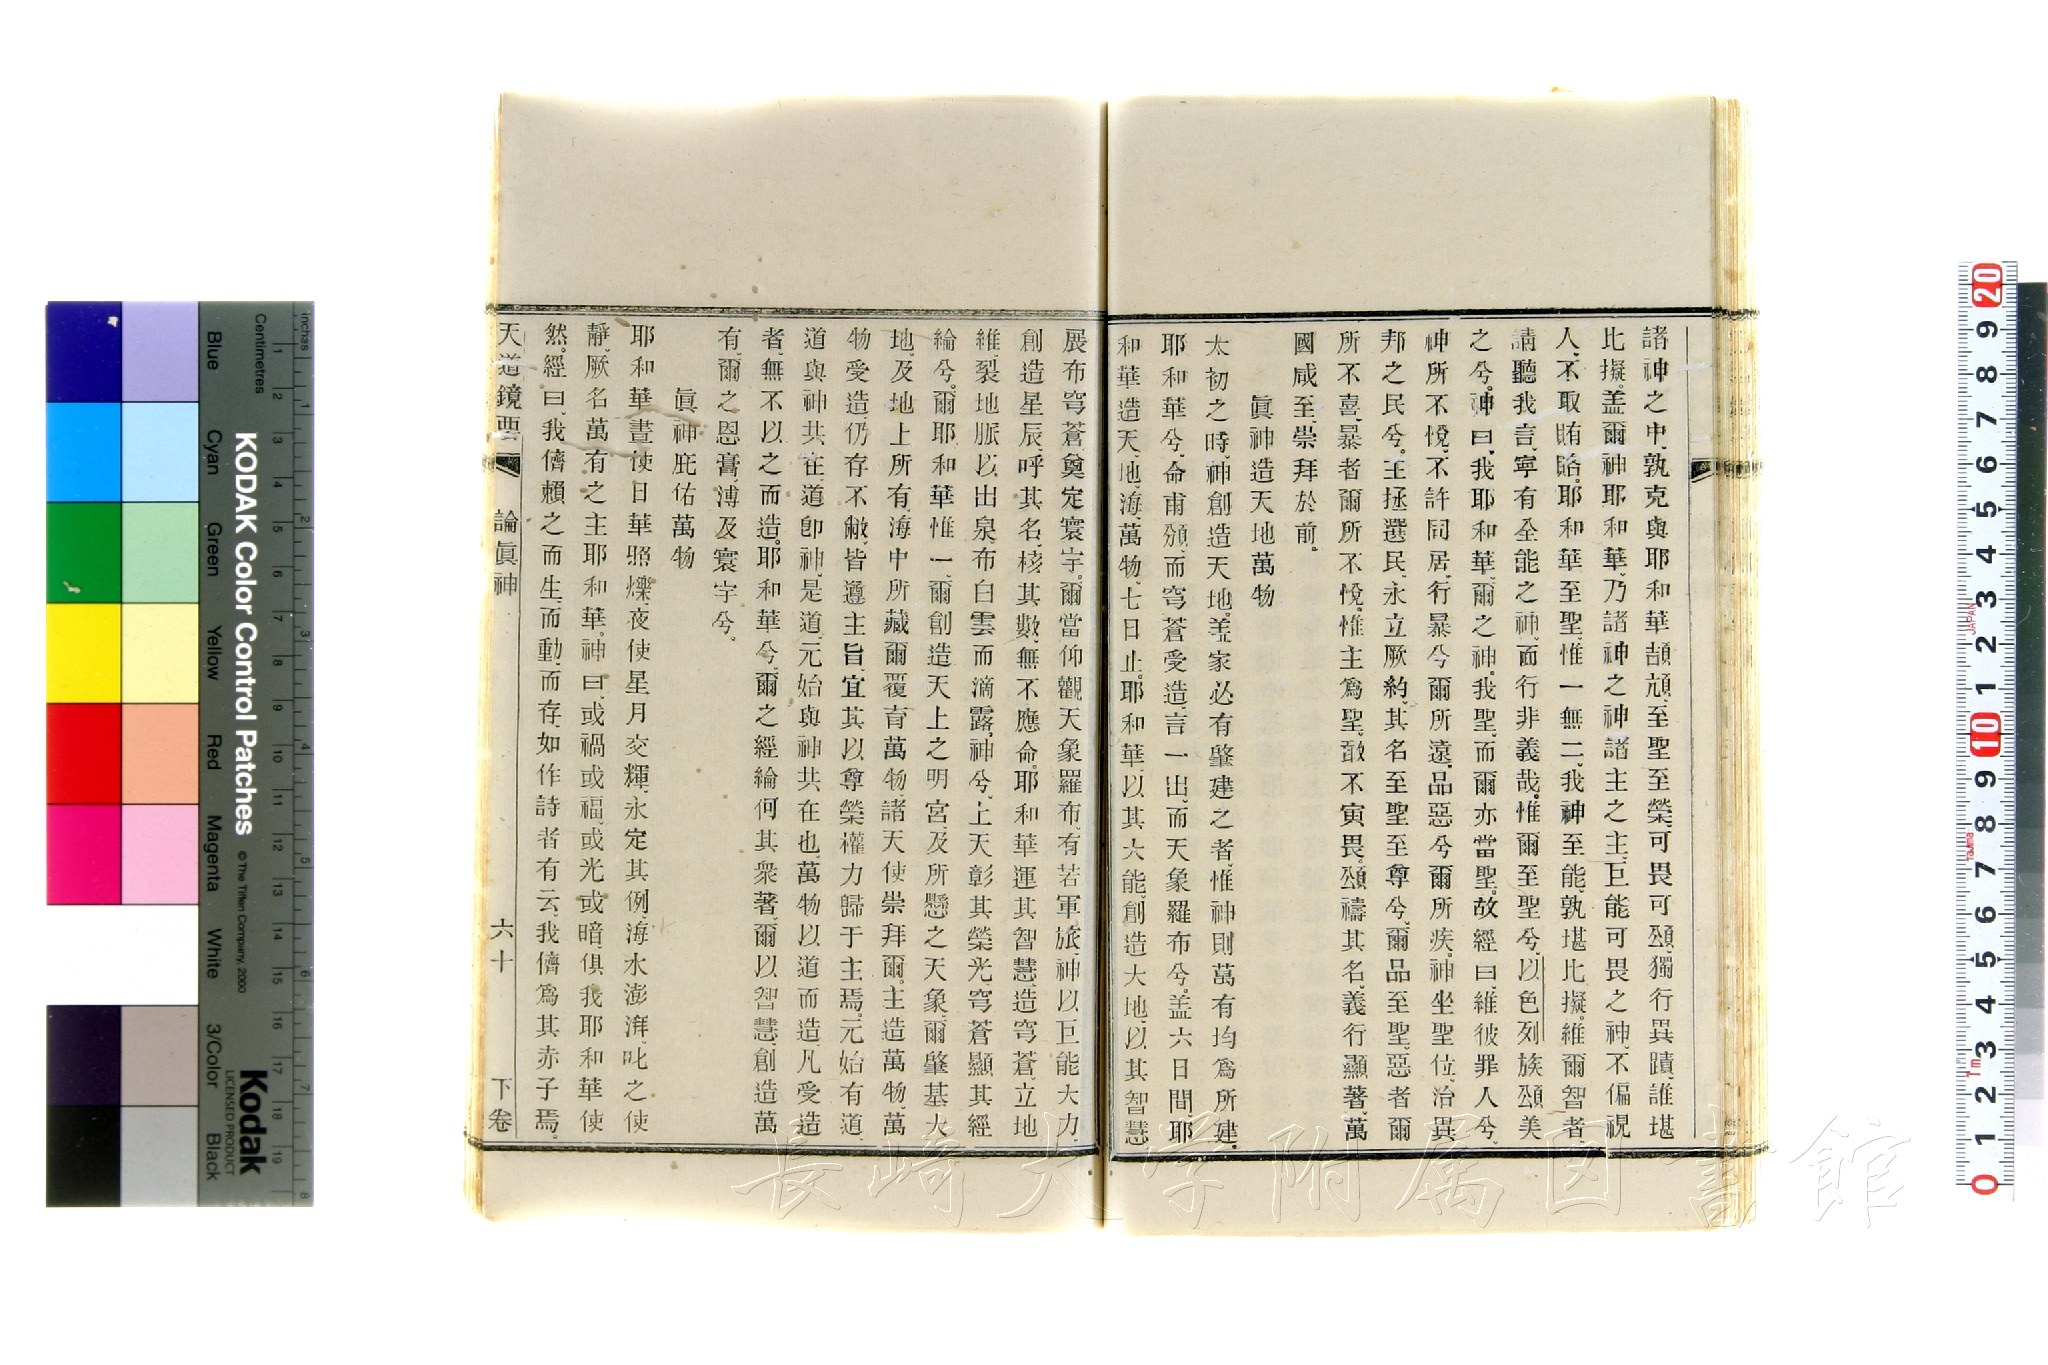 諸神之中、孰克與耶和華頡頏、至聖至榮、可畏可頌、獨行異蹟、誰堪
比擬。盖爾神耶和華、乃諸神之神、諸主之主、巨能可畏之神、不偏視
人、不取賄賂。耶和華至聖、惟一無二、我神至能、孰堪比擬。維爾智者
請聽我言、寧有全能之神、而行非義哉。惟爾至聖兮、以色列族頌美
之兮。神曰、我耶和華、爾之神。我聖、而爾亦當聖。故經曰、維彼罪人兮、
神所不悅、不許同居、行暴兮爾所遠、品惡兮爾所疾。神坐聖位、治異
邦之民兮。主拯選民、永立厥約、其名至聖至尊兮、爾品至聖。惡者爾
所不喜、暴者爾所不悅。惟主爲聖、敢不寅畏、頌禱其名、義行顯著、萬
國咸至、崇拜於前。
眞神造天地萬物
太初之時、神創造天地。盖家必有肇建之者、惟神則萬有均爲所建。
耶和華兮、命甫頒、而穹蒼受造、言一出、而天象羅布兮。盖六日間、耶
和華造天、地、海、萬物、七日止。耶和華、以其大能、創造大地、以其智慧
展布穹蒼、奠定寰宇。爾當仰觀天象羅布、有若軍旅、神以巨能大力、
創造星辰、呼其名、核其數、無不應命。耶和華運其智慧、造穹蒼、立地
維、裂地脈、以出泉、布白雲而滴露。神兮、上天彰其榮光、穹蒼顯其經
綸兮。爾耶和華惟一、爾創造天上之明宮、及所懸之天象、爾肇基大
地、及地上所有、海中所藏、爾覆育萬物、諸天使崇拜爾。主造萬物、萬
物受造、仍存不敝、皆遵主旨、宜其以尊榮權力歸于主焉。元始有道、
道與神共在、道卽神、是道元始與神共在也、萬物以道而造、凡受造
者、無不以之而造。耶和華兮、爾之經綸何其衆著、爾以智慧、創造萬
有、爾之恩膏、溥及寰宇兮。
眞神庇佑萬物
耶和華晝使日華照爍、夜使星月交輝、永定其例、海水澎湃、叱之使
靜、厥名萬有之主耶和華。神曰、或禍或福、或光或暗、俱我耶和華使
然。經曰、我儕賴之而生、而動、而存、如作詩者有云、我儕爲其赤子焉。
天道鏡要 論眞神 六十 下卷
長崎大学附属図書館
KODAK Color Control Patches © The Tiffen Company, 2000
Kodak LICENSED PRODUCT
inches
Centimetres
Blue Cyan Green Yellow Red Magenta White 3/Color Black
JAPAN